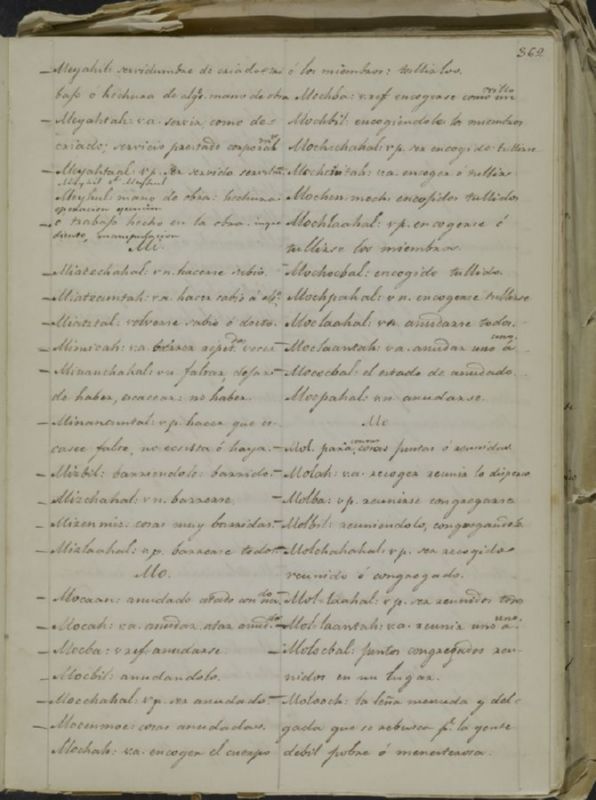 362
Meyahil: servidumbre de criado
bajo ó hechura de algᵒ. mano de obra
Meyahtah: v.a. servir, como de
criado; servicio prestado corporal
Meyahtaal: v.p. ser servido
Meyhul mano de obra: hechura
operacion
ó trabajo hecho en la obra.
manipulacion
Mi.
Miatechahal: v.n. hacerse sabio.
Miatecuntah: v.a. hacer sabio á
Miatztal: volverse sabio ó docto.
Mimicah: v.a. veces
Minanchahal: v.n. faltar, dejar
de haber, escacear: no haber.
Minancuntal: v.p. hacer que es-
casee falte, no ecsista ó haya.
Mizbil: barriendolo: barrido.
Mizchahal: v.n. barrerse.
Mizenmiz: cosas muy barridas.
Mizlaahal: v.p. barrerse todo.
Mo.
Mocaan: anudado atado
Mocah: v.a. anudar, atar
Mocba: v. ref. anudarse.
Mocbil: anudandolo.
Mocchahal: v.p. ser anudado.
Mocenmoc: cosas anudadas.
Mochah: v.a. encoger el cuerpo
ó los miembros: tullirlos.
Mochba: v. ref. encogerse como un
Mochbil: encogiendole los miembros
Mochchahal: v.p. ser encogido tullirse
v.a. encoger ó tullir
Mochenmoch: encogidos tullidos
Mochlaahal: v.p. encogerse ó
tullirse los miembros.
Mochocbal: encogido tullido.
Mochpahal: v.n. encogerse tullirse
Moclaahal: v.n. anudarse todo.
Moclaantah: v.a. anudar uno á
Mococbal: el estado de anudado.
Mocpahal: v.n. anudarse.
Mo
Mol. para cosas juntas ó reunidas
Molah: v.a. recoger reunir lo disperso
Molba: v.p. reunirse congregarse
Molbil: reuniendolo, congregandolo
Molchahahal: v.p. ser recogido
reunido ó congregado.
Mol-laahal: v.p. ser reunidos todo
Mol-laantah: v.a. reunir uno á uno.
Molocbal: juntos congregados reu-
nidos en un lugar.
Molooch: la leña menuda y del-
gada que se rebusca pʳ. la gente
debil pobre ó menesterosa.